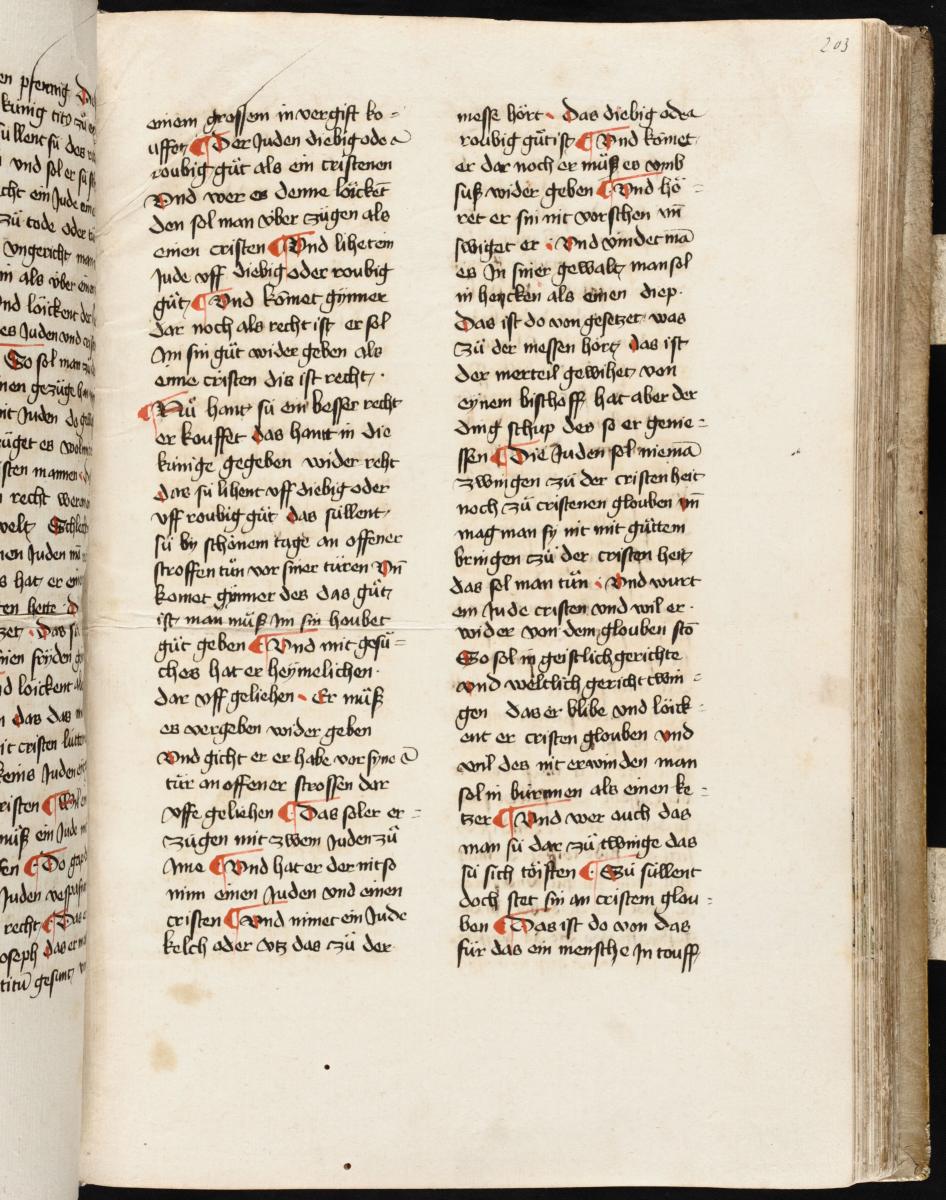 203
einem grossem in vergift ko=
uffen ¶ Der Juden diebig oder
roubig gůt als ein cristenen
Vnd wer es denne löicket
den sol man v̈ber zúgen als
einen cristen ¶ Vnd lihet ein
Jude vff diebig oder roubig
gůt ¶ Vnd kómet gynner
dar noch als recht ist er sol
Im sin gůt wider geben als
eime cristen dis ist recht ·
¶ Nů hant sú ein besser recht
er kouffet das hant in die
kúnige gegeben wider reht
das sú lihent vff diebig oder
vff roubig gůt das súllent
sú by schönem tage an offener
stroffen tůn vor siner túren Vn̄
komet gynner des das gůt
ist man můß Im sin houbet
gůt geben ¶ Vnd mit gesů=
ches hat er heymelichen
dar vff geliehen · Er můß
es vergeben wider geben
Vnd gicht er er habe vor syne
túr an offener strossen dar
vffe geliehen ¶ Das sol er er=
zúgen mit zwein Juden zů
Ime ¶ Vnd hat er der nit so
nim einen Juden vnd einen
cristen ¶ Vnd nimet ein Jude
kelch oder vtz das zů der
messe hört · Das diebig oder
roubig gůt ist ¶ Vnd kómet
er dar noch er můß es vmb
suß wider geben ¶ Vnd hö=
ret er sin nit vorschen vn̄
swiget er · Vnd vindet mā
es In siner gewalt man sol
in hencken als einen diep ·
Das ist do von gesetzet was
zů der messen hört das ist
der merteil gewihet von
eynem bischoff hat aber der
ding schup des so er genie=
ssen ¶ Die Juden sol niemā
zwingen zů der cristenheit
noch zů cristenen glouben vn̄
mag man sy nit mit gůttem
bringen zů der cristenheit
das sol man tůn · Vnd wurt
ein Jude cristen vnd wil er
wider von dem glouben ston
So sol in geistlich gerichte
vnd weltlich gericht twin=
gen das er blibe vnd löick=
ent er cristen glouben vnd
wil des nit erwinden man
sol in búrnnen als einen ke=
tzer ¶ Vnd wer auch das
man sú dar zů twinge das
sú sich töiften ¶ Sú súllent
doch stet sin an cristem glou=
ben ¶ Das ist do von das
fúr das ein mensche In touff